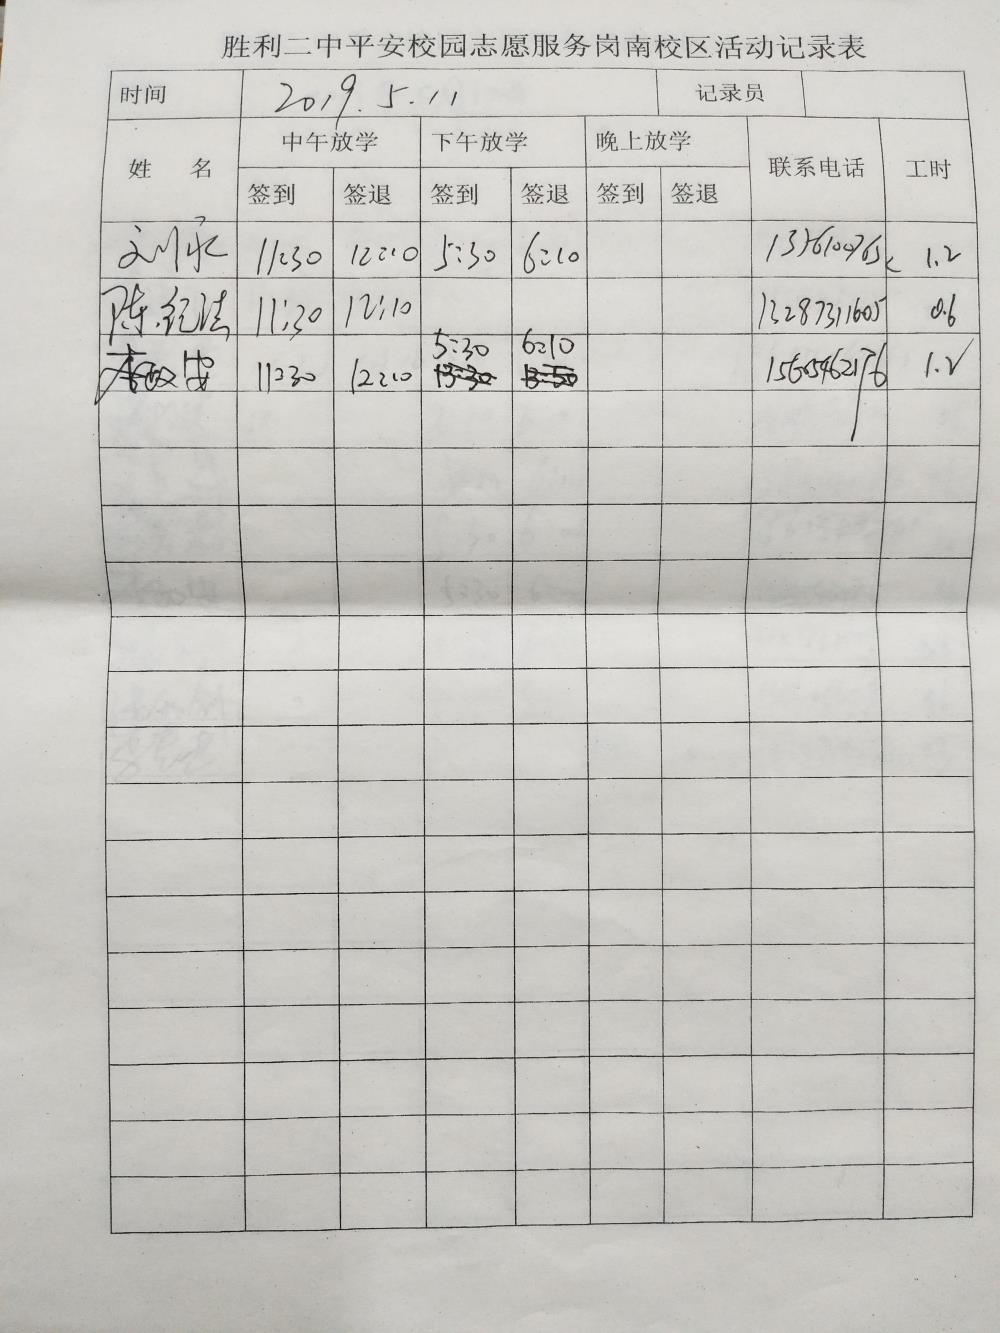 胜利二中平安校园志愿服务岗南校区活动记录表
时间 2019.5.11 记录员
姓 名 中午放学 下午放学 晚上放学 联系电话 工时
签到 签退 签到 签退 签到 签退
刘永 11:30 12:10 5:30 6:10 1.2
陈纪法 11:30 12:10 13287311605 0.6
5:30 6:10
11:30 12:10 1.2